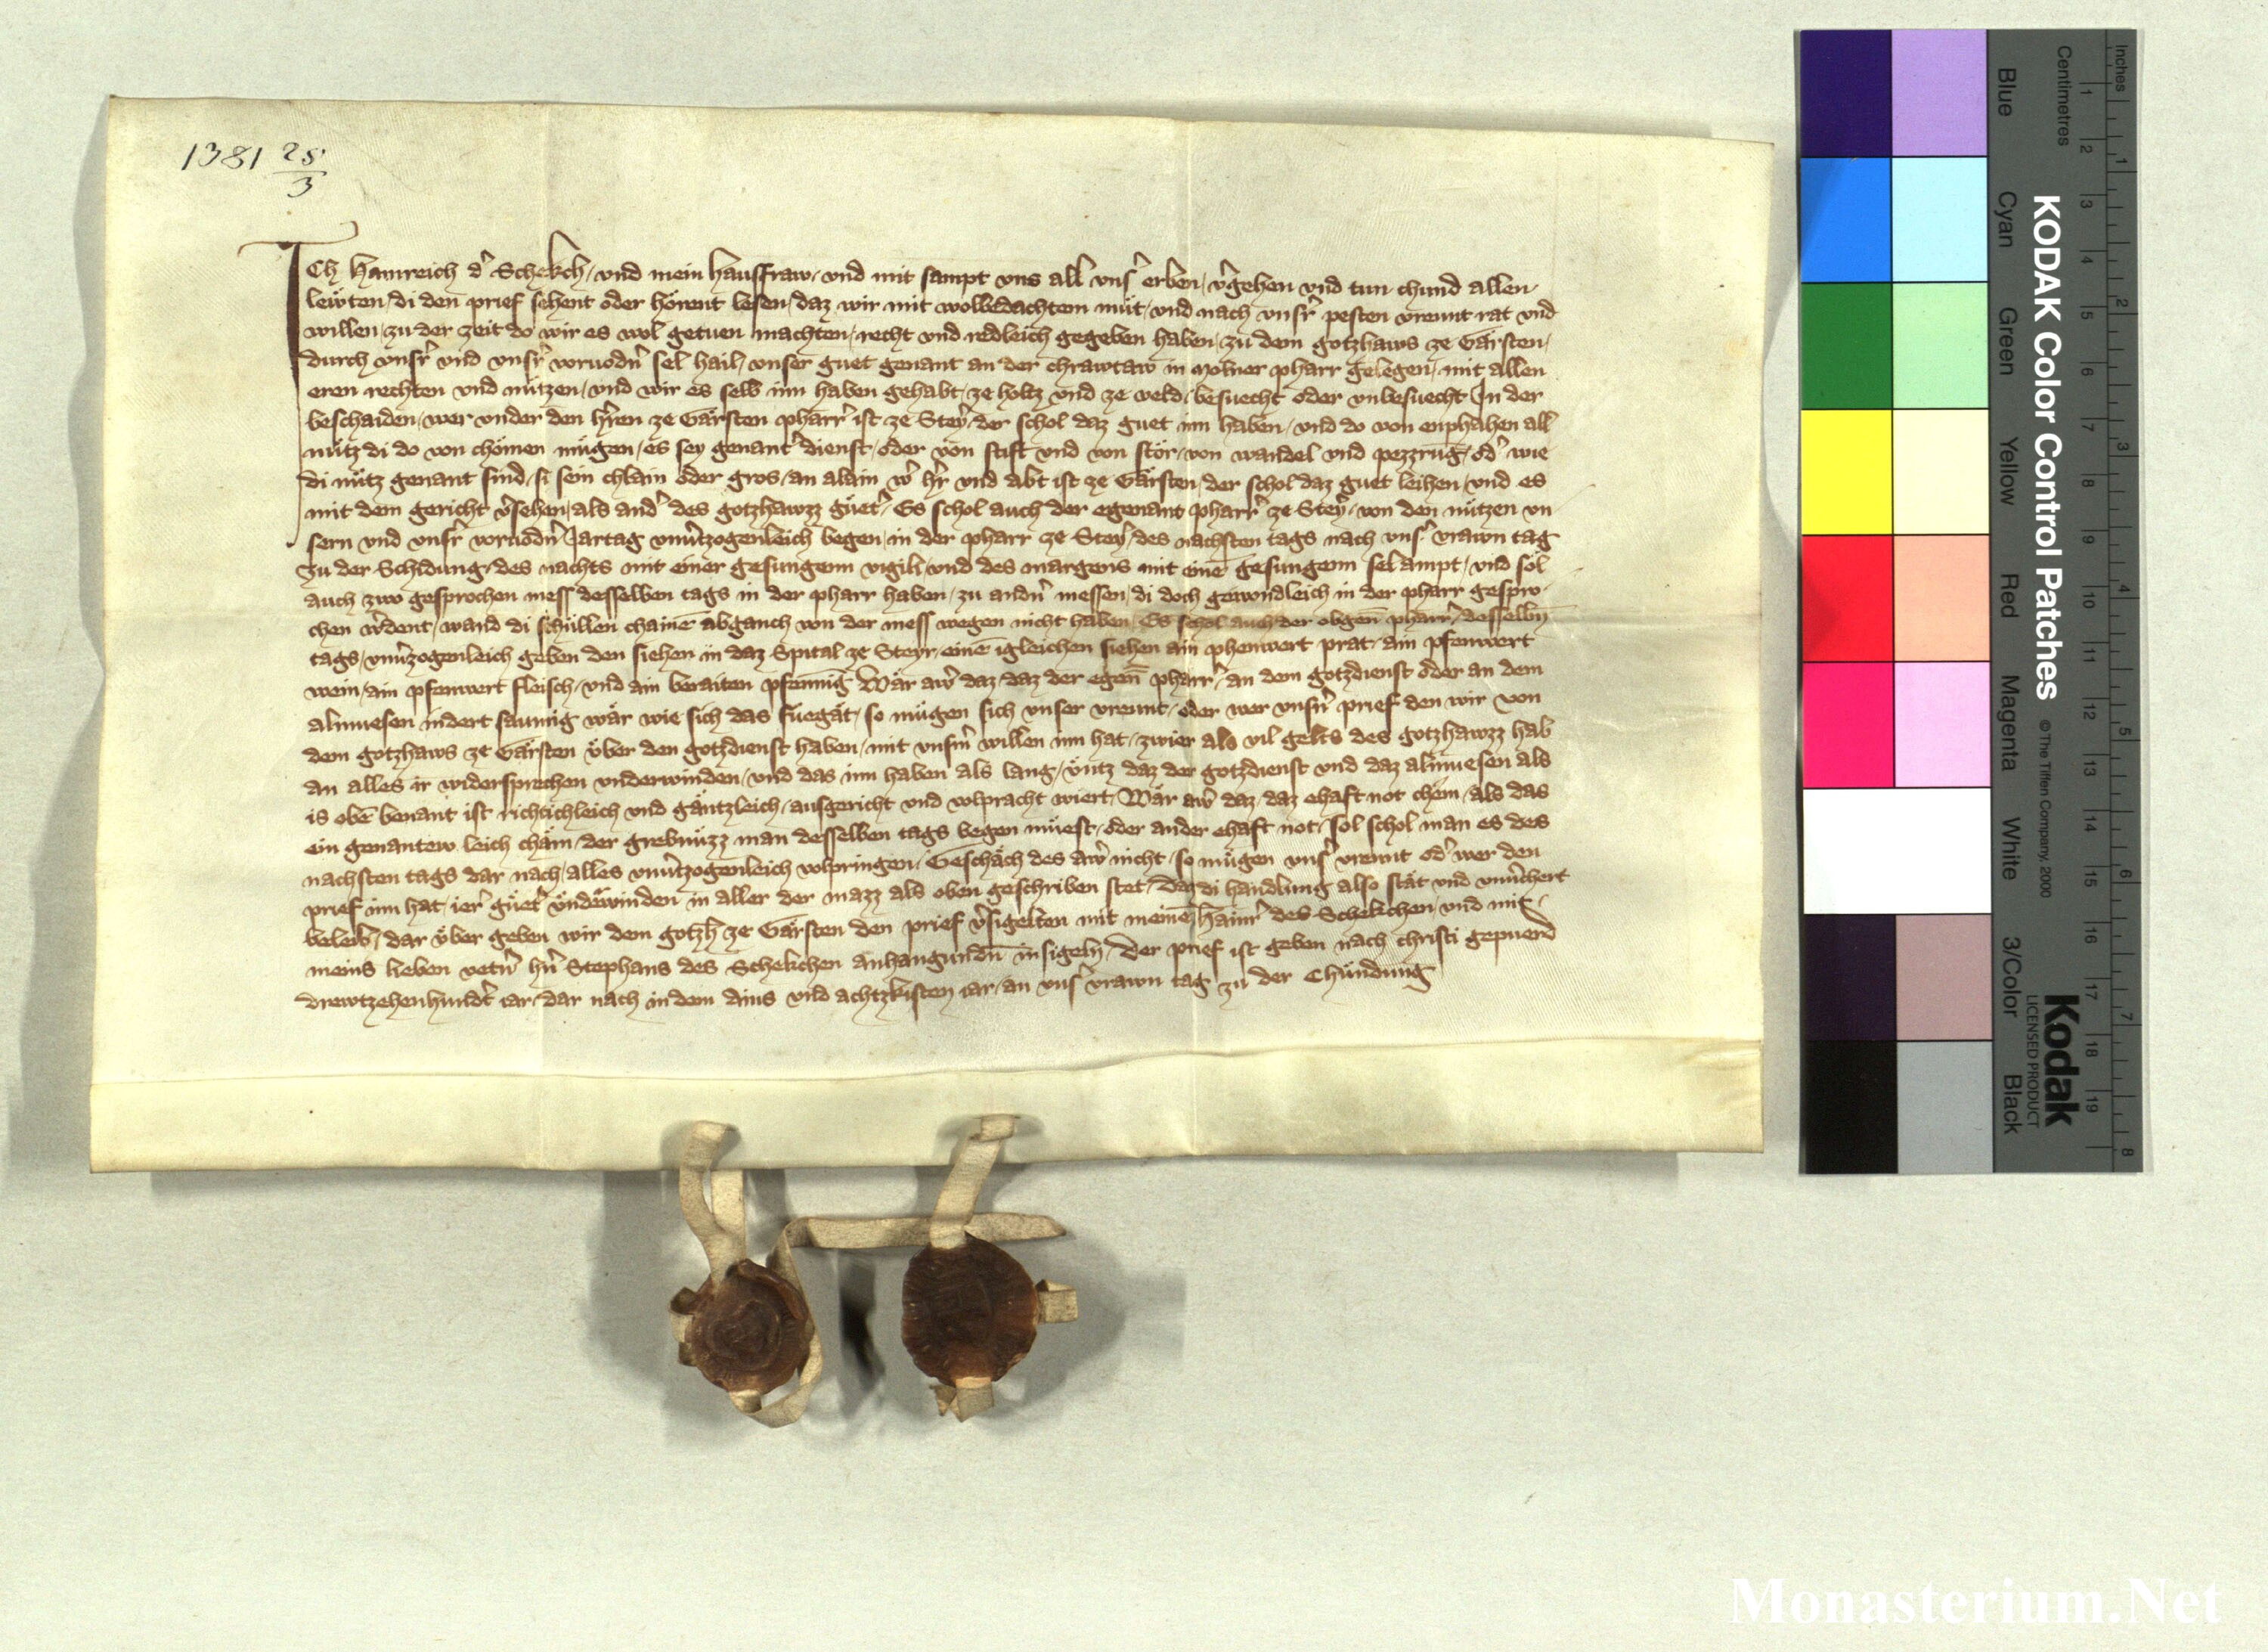 1381 25/3
Ich Hainreich d' Schekch / vnd mein hausfraw / vnd mit sampt vns all vnser erben / v'gehen vnd tun chund allen
lewten / di den prief sehent oder hörent lesen / daz wir mit wolbedachtem müt / vnd nach vnsr' pesten vreunt rat vnd
willen / zu der zeit do wir es wol getuen machten / recht vnd redleich gegeben haben / zu dem gotzhaws ze Gärsten /
durch vnsr' vnd vnsr' voruodn' sel hail / vnser guet genant an der chrawtaw in Molner pharr gelegen / mit allen
eren rechten vnd nützen / vnd wir es selb inn haben gehabt / ze holtz vnd ze veld / besuecht oder vnbesuecht In der
beschaiden / wer vnder den h'ren ze Gärsten pharr' ist ze Stey' / der schol daz guet inn haben / vnd do von enphahen all
nütz di do von chömen mügen / es sey genant dienst / oder von stift vnd von stör / von wandel vnd pezzrug̅ / od' wie
di nütz genant sind / si sein chlain oder gros / an alain w' h'r vnd abt ist ze Gärsten / der schol daz guet leihen / vnd es
mit dem gericht v'sehen / als and' des gotzhawzz güet' / Es schol auch der egenant pharr' ze Stey' / von den nützen vn
sern vnd vnsr' voruodn' Jartag vnu'tzogenleich begen / in der pharr ze Stey' / des nachsten tags nach vns' vrawn tag
zu der Schidung / des nachts mit einer gesungenn vigili / vnd des margens mit eine̅ gesungenn selampt / vnd sol
auch zwo gesprochen mess desselben tags in der pharr haben / zu andn' messen / di doch gewondleich in der pharr gespro
chen w'dent / wand di schüllen chaine̅ abganch von der mess wegen nicht haben / Es schol auch der obgen̅ pharr' / desselbn̅
tags / vnu'zogenleich geben den siehen in daz Spital ze Steyr / eine̅ igleichen siehen ain phenwert prat / ain pfenwert
wein / ain pfenwert fleisch / vnd ain beraiten pfenning̅ Wär aw' daz / daz der egen̅ pharr' / an dem gotzdienst oder an dem
almuesen indert saumig wär wie sich das fuegät / so mügen sich vnser vreunt / oder wer vnsn' prief den wir von
dem gotzhaws ze Gärsten über den gotzdienst haben / mit vnsm' willen inn hat / zwier als vil gelts des gotzhawzz hab
an alles ir widersprechen vnderwinden / vnd das inn haben als lang / üntz daz der gotzdienst vnd daz almuesen als
is obe̅ benant ist richtichleich vnd gäntzleich / ausgericht vnd volpracht wiert / Wär aw' daz / daz ehaft not chem / als das
ein genantew leich chäm / der grebnüzz man desselben tags begen müest / oder ander ehaft not / sol schol man es des
nachsten tags dar nach / alles vnu'tzogenleich volpringen / Geschäch des aw' nicht / so mügen vns' vreunt od' wer den
prief inn hat / ier güet' vnderwinden in aller der mazz als oben geschriben stet / Daz di handlung also stät vnd vnu'chert
beleib / dar über geben wir dem gotzh ze Gärsten den prief v'sigelten mit meine̅ Hainr' des Schekchen / vnd mit
meins lieben vetn' hn' Stephans des Schekchen anhangundn̅ insigeln / Der prief ist geben nach christi gepuerd
drewtzehenhundt' iar / dar nach in dem ains vnd achtzkisten iar / an vns' vrawn tag zu der Chündung
KODAK Color Control Patches
© The Tiffen Company, 2000
Kodak
LICENSED PRODUCT
Inches 1 2 3 4 5 6 7 8
Centimetres 1 2 3 4 5 6 7 8 9 10 11 12 13 14 15 16 17 18 19
Blue Cyan Green Yellow Red Magenta White 3/Color Black
Monasterium.Net